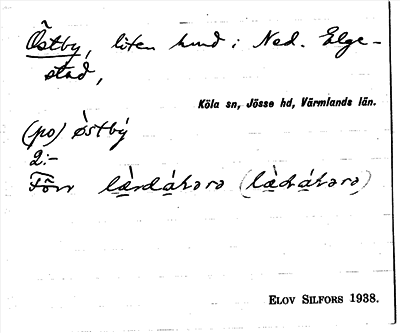 Östby, liten hund i Ned. Elge-
stad,
Köla sn, Jösse hd, Värmlands län.
(po) östby
2:-
Förr
ELOV SILFORS 1938.